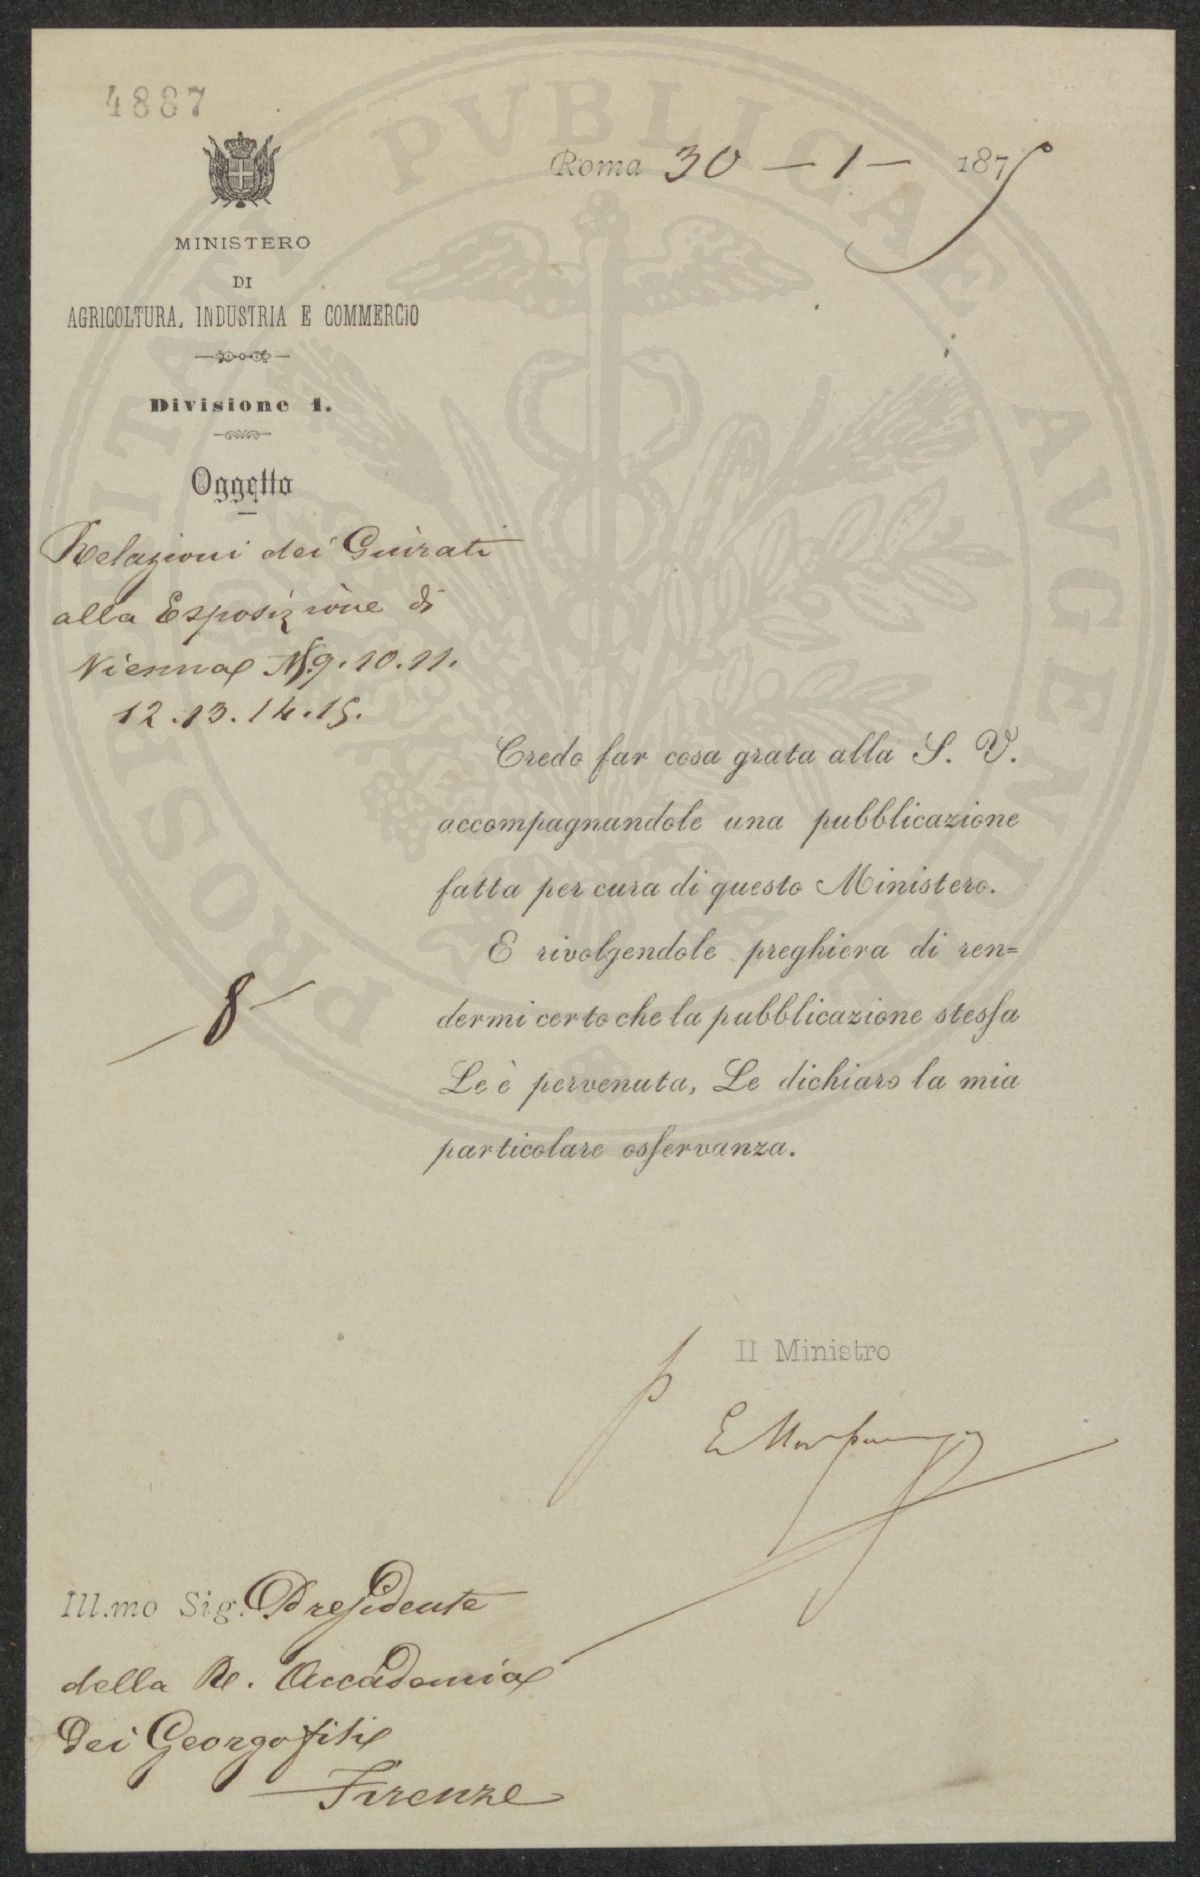 4887
Roma 30 - 1 - 1875
MINISTERO
DI
AGRICOLTURA, INDUSTRIA E COMMERCIO
Divisione 1.
Oggetto
Relazioni dei Giurati
alla Esposizione di
Vienna N. 9. 10. 11.
12. 13. 14. 15.
Credo far cosa grata alla S. V.
accompagnandole una pubblicazione
fatta per cura di questo Ministero.
E rivolgendole preghiera di ren=
dermi certo che la pubblicazione stessa
Le è pervenuta, Le dichiaro la mia
particolare osservanza.
8
Il Ministro
E Morpurgo
Ill.mo Sig. Presidente
della R. Accademia
dei Georgofili
Firenze
PROSPERITATI PVBLICAE AVGENDAE